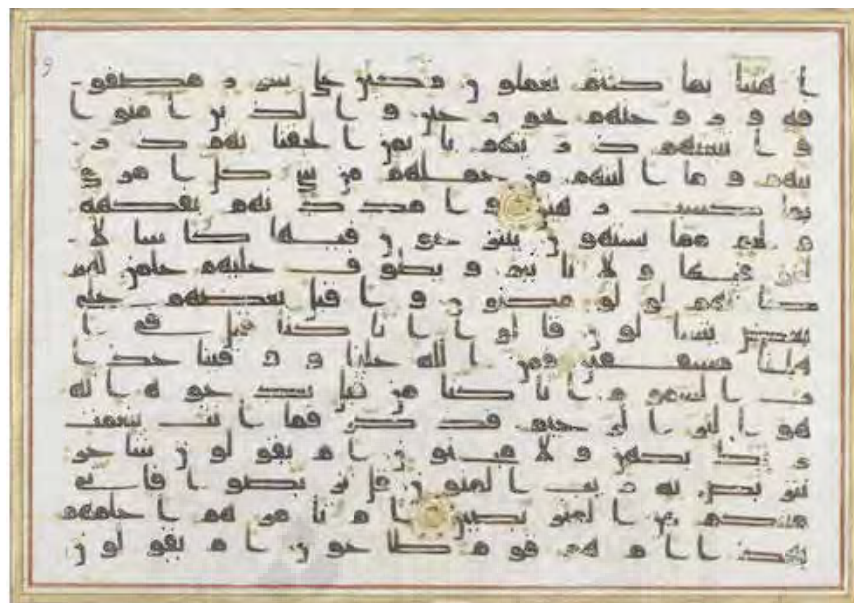 ا هنيا بما كنتم تعملون متكين على سرر مصفو
فة وزوجنهم بحور عين والذين امنوا
واتبعتهم ذريتهم بايمن الحقنا بهم ذر
يتهم وما التنهم من عملهم من شي كل امري
بما كسب رهين وامددنهم بفكهة
ولحم مما يشتهون يتنزعون فيها كاسا لا
لغو فيها ولا تاثيم ويطوف عليهم غلمن لهم
كانهم لولو مكنون واقبل بعضهم على
بعض يتسالون قالوا انا كنا قبل في ا
هلنا مشفقين فمن الله علينا ووقينا عذا
ب السموم انا كنا من قبل ندعوه انه
هو البر الرحيم فذكر فما انت بنعمت
ربك بكهن ولا مجنون ام يقولون شاعر
نتربص به ريب المنون قل تربصوا فاني
معكم من المتربصين ام تامرهم احلمهم
بهذا ام هم قوم طاغون ام يقولون